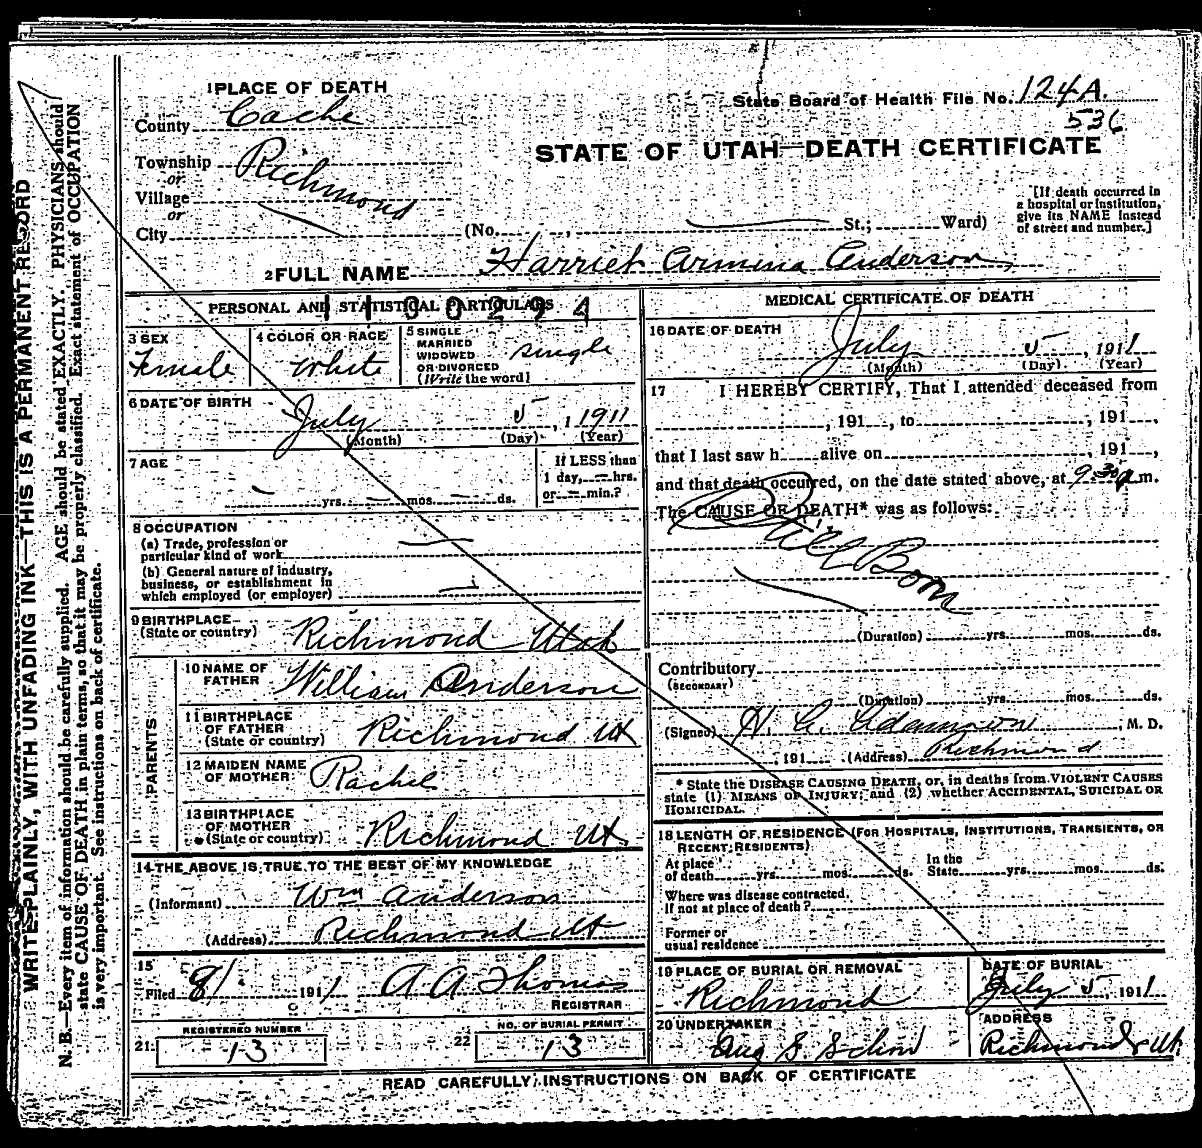 WRITE PLAINLY, WITH UNFADING INK—THIS IS A PERMANENT RECORD
N. B.—Every item of information should be carefully supplied. AGE should be stated EXACTLY. PHYSICIANS should
state CAUSE OF DEATH in plain terms, so that it may be properly classified. Exact statement of OCCUPATION
is very important. See instructions on back of certificate.
1 PLACE OF DEATH
State Board of Health File No. 124A.
536
County Cache
STATE OF UTAH—DEATH CERTIFICATE
Township Richmond
or
Village
or
City
(No. , St.; Ward)
[If death occurred in
a hospital or institution,
give its NAME instead
of street and number.]
2 FULL NAME Harriet Armina Anderson
PERSONAL AND STATISTICAL PARTICULARS
1100294
3 SEX
Female
4 COLOR OR RACE
White
5 SINGLE
MARRIED
WIDOWED
OR DIVORCED
(Write the word)
single
6 DATE OF BIRTH
July 5, 1911
(Month) (Day) (Year)
7 AGE
yrs. mos. ds.
If LESS than
1 day, hrs.
or min.?
8 OCCUPATION
(a) Trade, profession or
particular kind of work
(b) General nature of industry,
business, or establishment in
which employed (or employer)
9 BIRTHPLACE
(State or country) Richmond Utah
PARENTS
10 NAME OF
FATHER William Anderson
11 BIRTHPLACE
OF FATHER
(State or country) Richmond Ut
12 MAIDEN NAME
OF MOTHER Rachel
13 BIRTHPLACE
OF MOTHER
(State or country) Richmond Ut
14 THE ABOVE IS TRUE TO THE BEST OF MY KNOWLEDGE
(Informant) Wm Anderson
(Address) Richmond Ut
15
Filed 8/ 1911 A A Thomas
REGISTRAR
21 REGISTERED NUMBER
13
22 NO. OF BURIAL PERMIT
13
MEDICAL CERTIFICATE OF DEATH
16 DATE OF DEATH
July 5, 1911
(Month) (Day) (Year)
17 I HEREBY CERTIFY, That I attended deceased from
, 191 , to , 191 ,
that I last saw h alive on , 191 ,
and that death occurred, on the date stated above, at 9:30 m.
The CAUSE OF DEATH* was as follows:
Still Born
(Duration) yrs. mos. ds.
Contributory
(SECONDARY)
(Duration) yrs. mos. ds.
(Signed) , M. D.
, 191 (Address) Richmond
* State the DISEASE CAUSING DEATH, or, in deaths from VIOLENT CAUSES
state (1) MEANS OF INJURY; and (2) whether ACCIDENTAL, SUICIDAL OR
HOMICIDAL.
18 LENGTH OF RESIDENCE (FOR HOSPITALS, INSTITUTIONS, TRANSIENTS, OR
RECENT RESIDENTS)
At place
of death yrs. mos. ds.
In the
State yrs. mos. ds.
Where was disease contracted,
if not at place of death?
Former or
usual residence
19 PLACE OF BURIAL OR REMOVAL
Richmond
DATE OF BURIAL
July 5, 1911
20 UNDERTAKER
Aug S. Schow
ADDRESS
Richmond Ut
READ CAREFULLY INSTRUCTIONS ON BACK OF CERTIFICATE